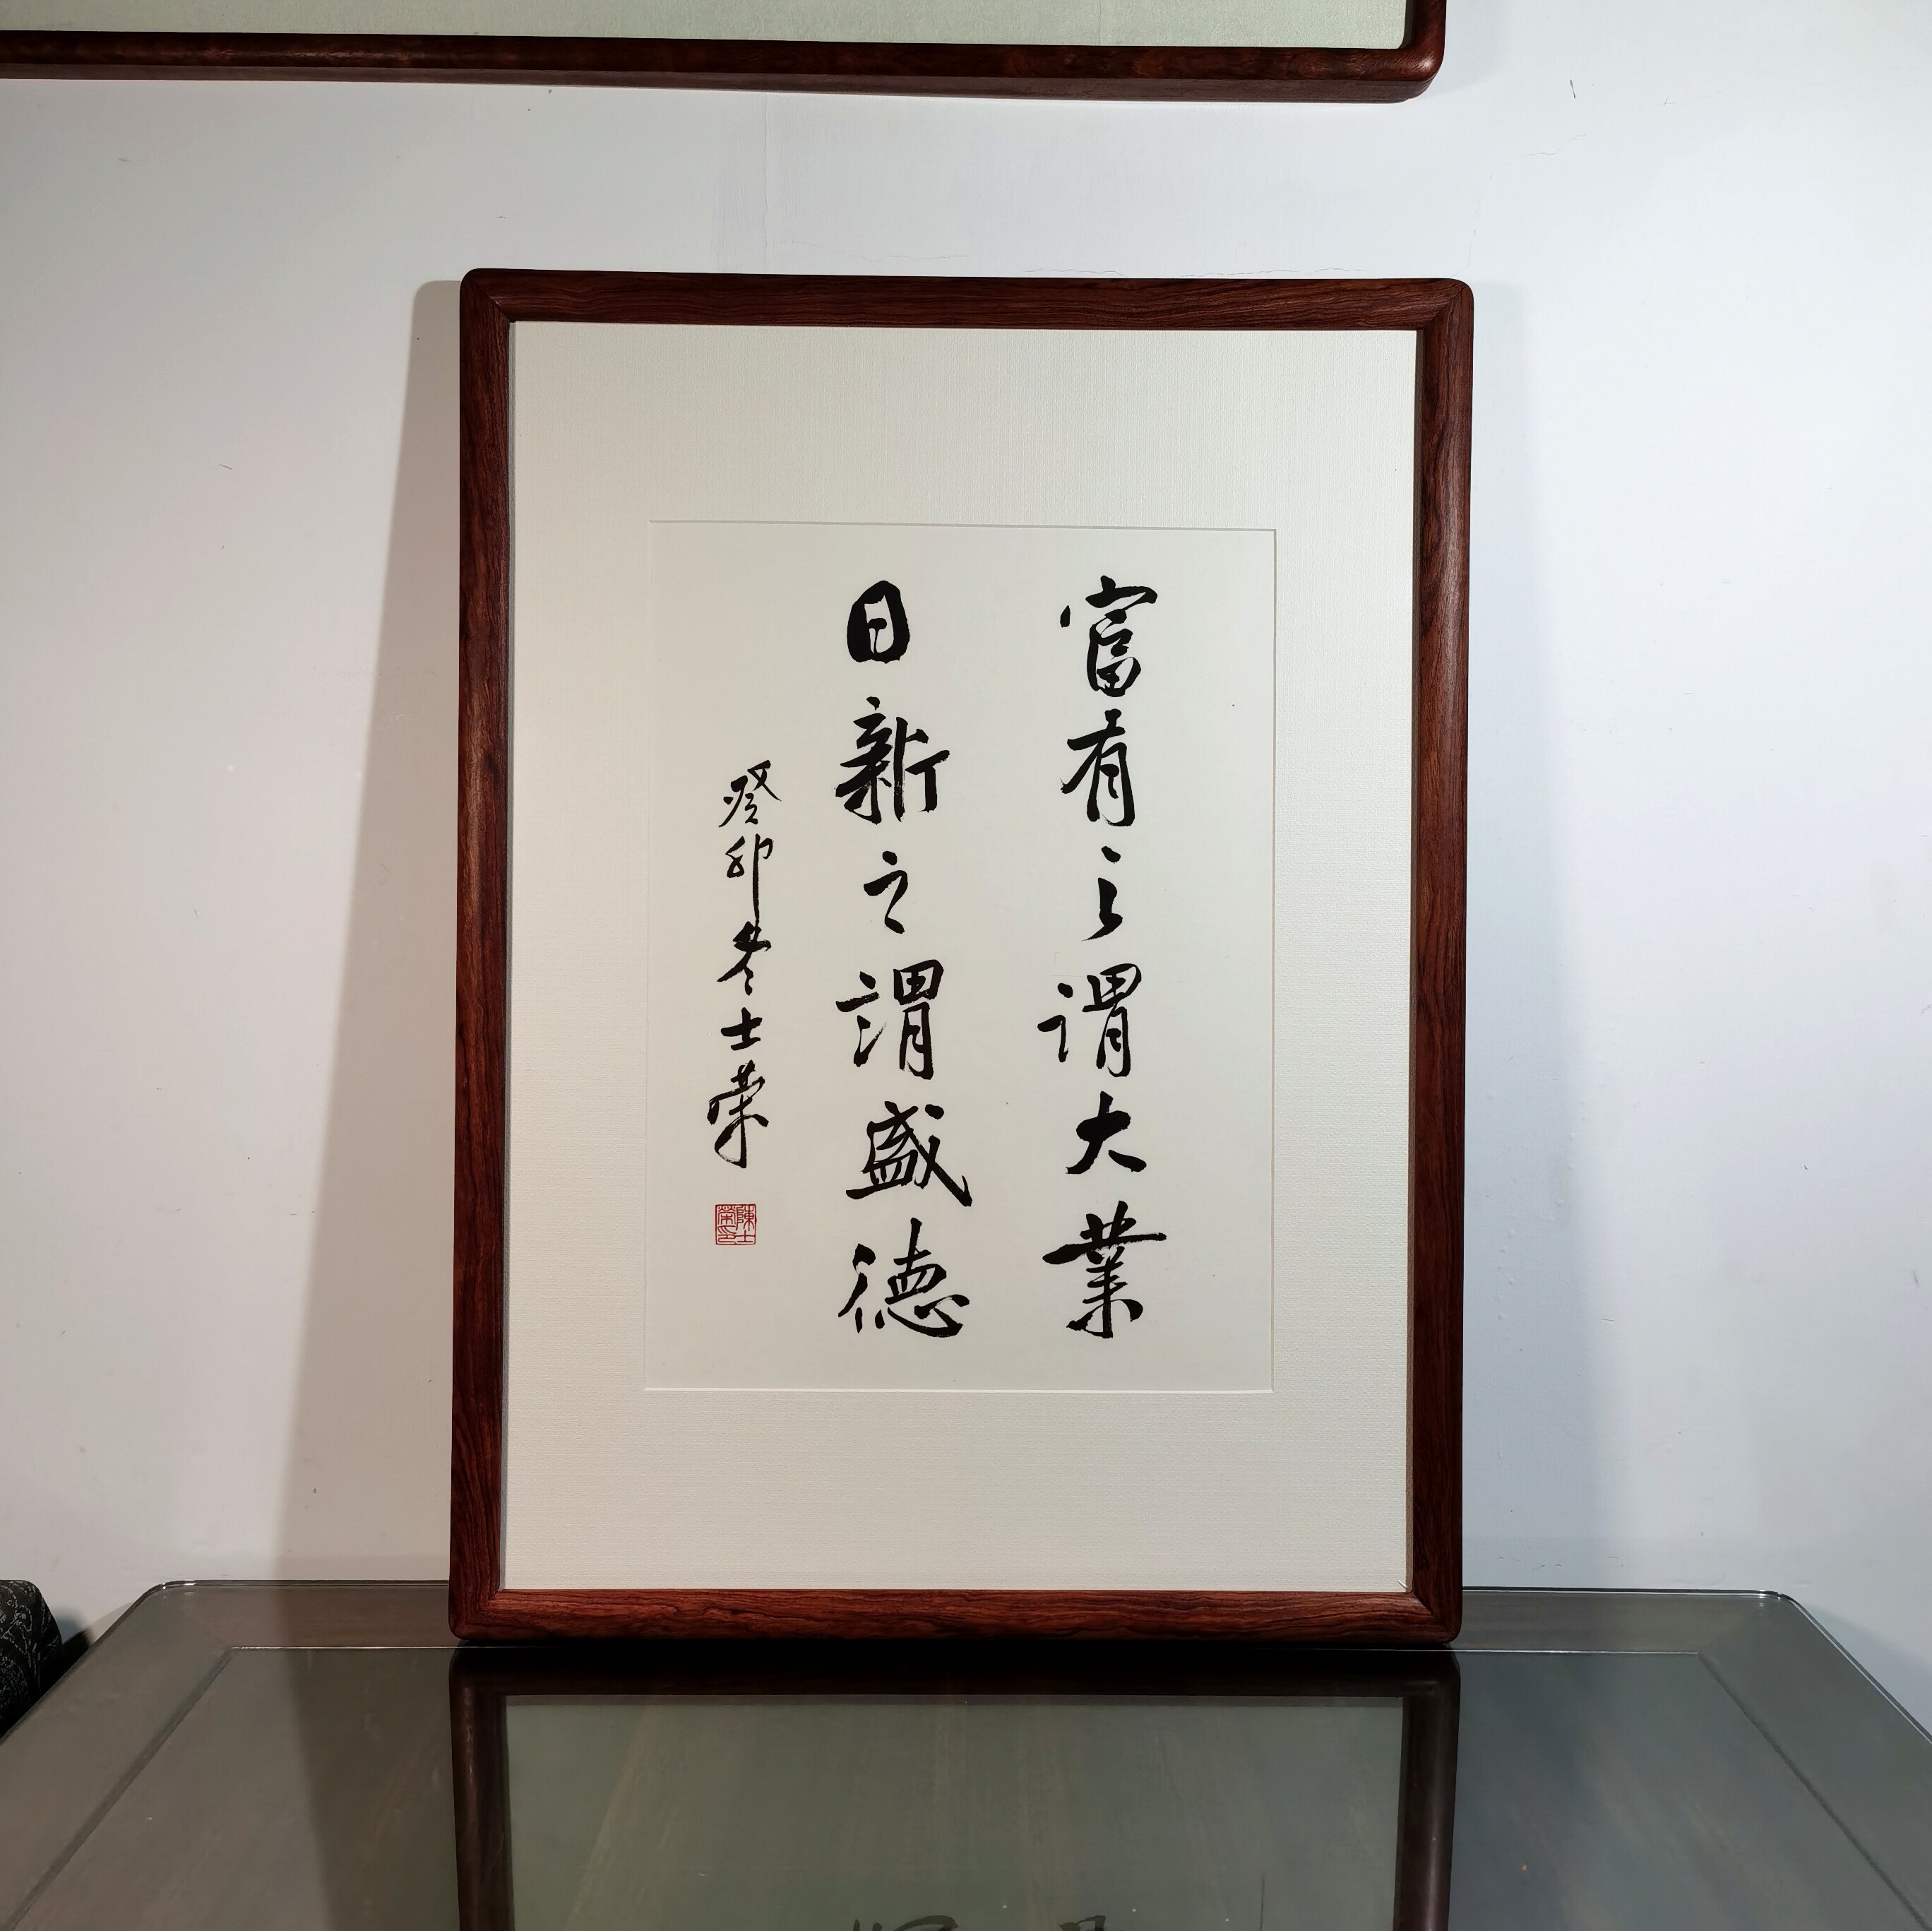 富有之谓大業
日新之謂盛德
癸卯冬士荣
陳士榮印